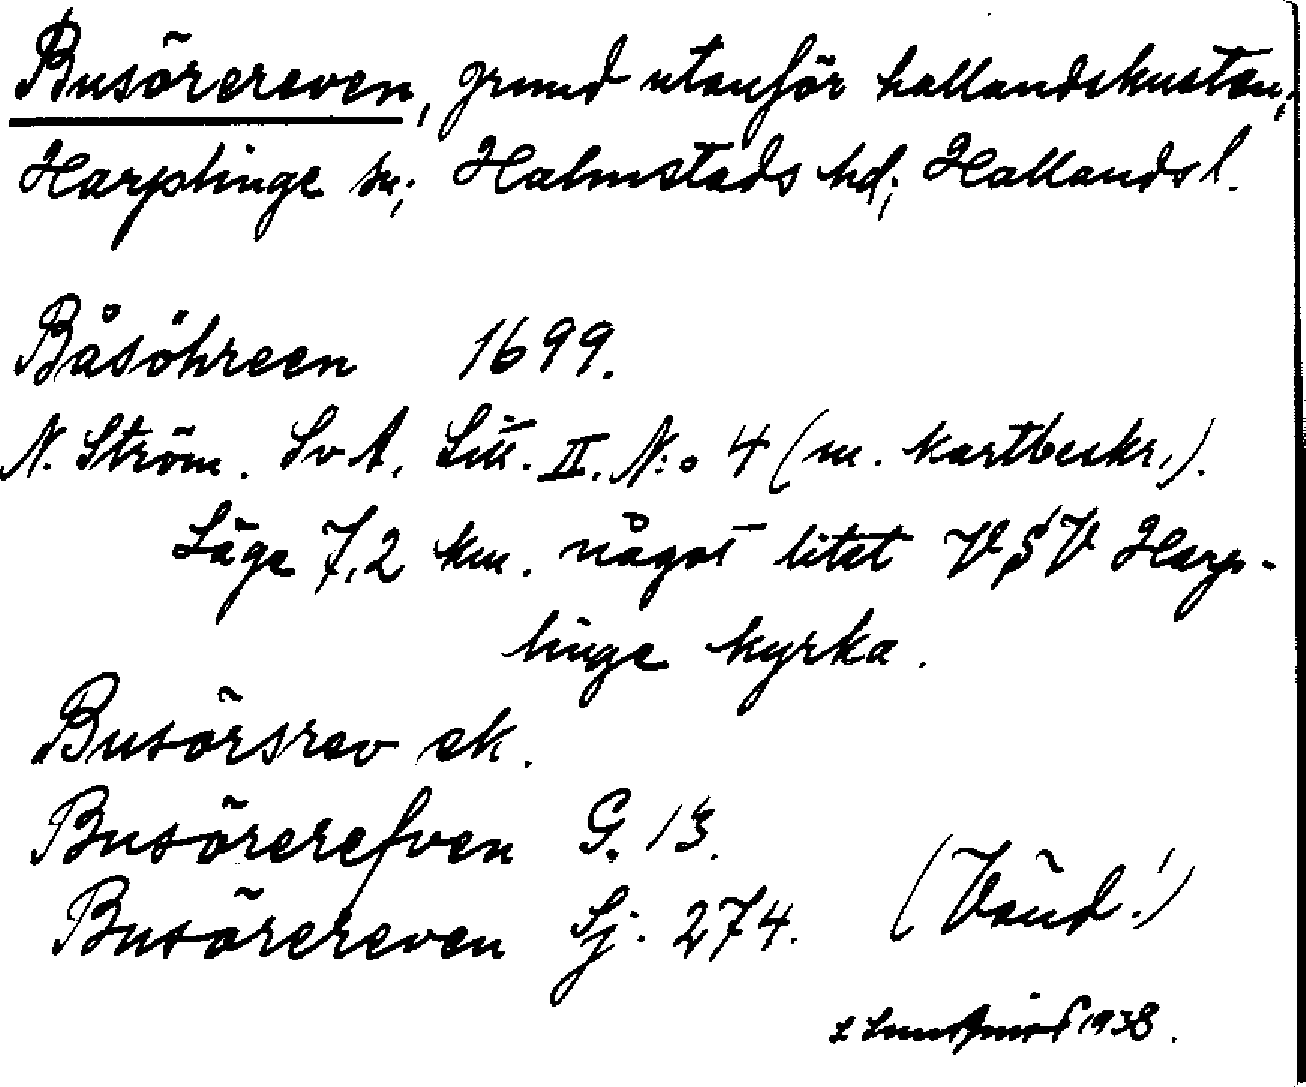 Busörereven, grund utanför hallandskusten,
Harplinge sn; Halmstads hd; Hallands l.
Båsöhreen 1699.
N. Ström. SvA, Litt. II. N:o 4 (m. kartbeskr.).
Läge 7,2 km. något litet V§V Harp-
linge kyrka.
Busörsrev ek.
Busörerefven G. 13.
Busörereven Sj. 274. (Vänd!)
1938.